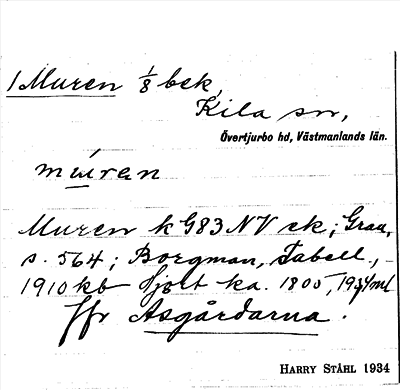 1 Muren 1/8 bsk,
Kila sn,
Övertjurbo hd, Västmanlands län.
mu̇ren
Muren k G83 NV ek; Grau,
s. 564; Borgman, Tabell.,
1910 kb Hjort ka. 1805, 1934 ml
ffr Asgårdarna.
HARRY STÅHL 1934